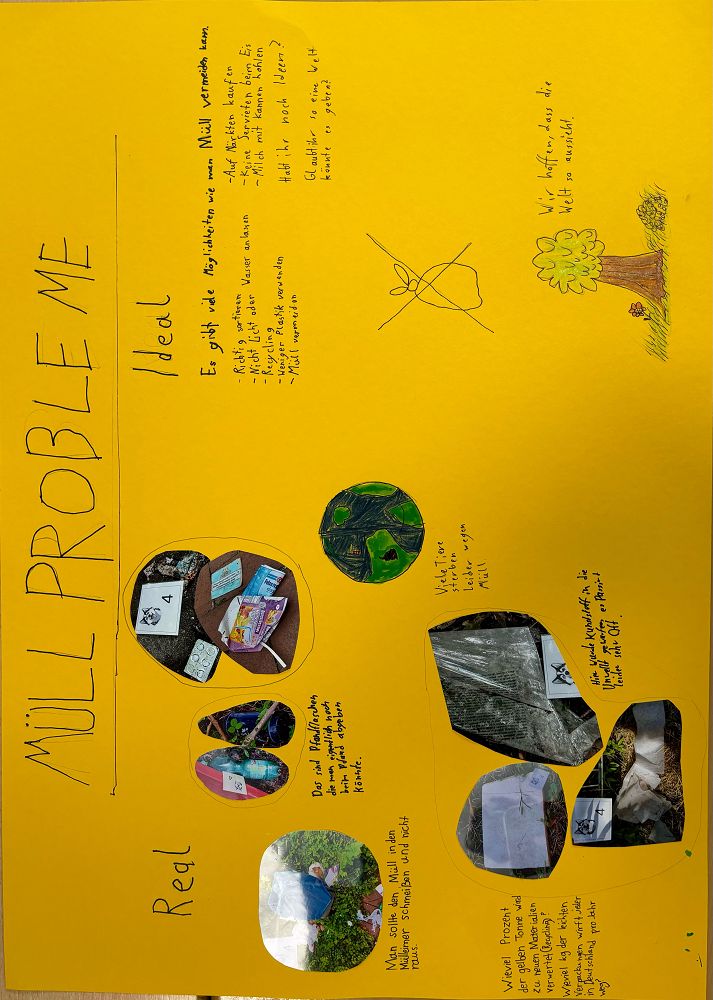 MÜLL PROBLEME
Real
Ideal
Man sollte den Müll in den
Mülleimer schmeißen und nicht
raus.
Das sind Pfandflaschen
die man eigentlich noch
beim Pfand abgeben
könnte.
4
Viele Tiere
sterben
Leider wegen
Müll
Hir wurde Kunstoff in die
Umwelt geworfen es Passirt
leider sehr Oft.
4
Wieviel Prozent
der gelben Tonne wird
zu neuen Materialien
verwertet (Recycling)?
Weviel kg der leichten
Verpackungen wirft Jeder
in Deutschland pro Jahr
weg?
Es gibt viele Möglichkeiten wie man Müll vermeiden kann.
- Richtig sortieren
- Nicht Licht oder Wasser anlassen
- Recycling
- Weniger Plastik verwenden
- Müll vermeiden
- Auf Märkten kaufen
- Keine Servieten beim Eis
- Milch mit kannen hohlen
Habt ihr noch Ideen?
Glaubt ihr so eine Welt
könnte es geben?
Wir hoffen, dass die
Welt so aussieht!